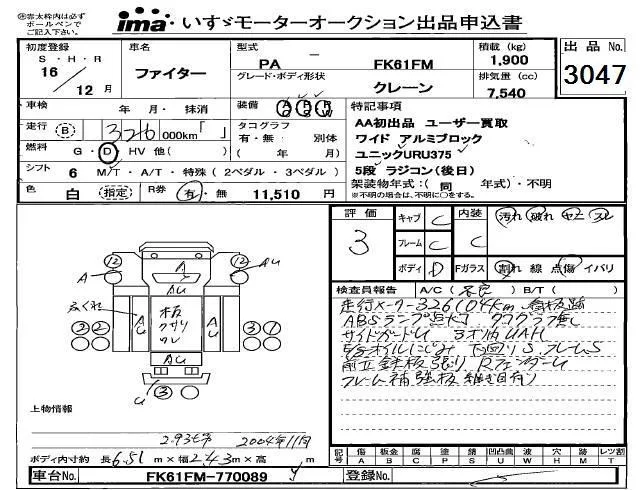 ※赤太枠内は必ず
ボールペンで
ご記入下さい。
ima いすゞモーターオークション出品申込書
初度登録 車名 型式 積載 (kg) 出品 No.
S・H・R
16 / 12 月
ファイター
PA － FK61FM
1,900
3047
グレード・ボディ形状 クレーン
排気量 (cc) 7,540
車検 年 月・ 抹消
装備
特記事項
走行 (B) 326 000km「 」
タコグラフ
有・無 別体
( 年 月)
燃料 G・D・HV 他( )
シフト 6 M/T・A/T・特殊 (2ペダル・3ペダル)
色 白 (指定) R券 有・無 11,510 円
AA初出品 ユーザー買取
ワイド アルミブロック
ユニックURU375
5段 ラジコン(後日)
架装物年式:( 同 年式)・不明
※不明の場合は、不明に○をする。
評価 3
キャブ C 内装 C 汚れ 破れ ヤニ スレ
フレーム C
ボディ D Fガラス 割れ 線 点傷 イバリ
検査員報告 A/C (不良) B/T ( )
走行メーター326104km
ABSランプ点灯 タコグラフ無し
サイドガードU
下回りS フレームS
フレーム補強板
12 A 12 AU
AU
ふくれ
AU 板 クサリ ワレ AU
2 2 3 1
AU
U 3
上物情報
2.93t吊 2004年11月
ボディ内寸約 長6.51m×幅2.43m×高 m
記号 傷A 板金B 腐C 塗P 錆S 凹凸曲U 波W 穴H 跡M レツ割T
車台No. FK61FM-770089 登録No.